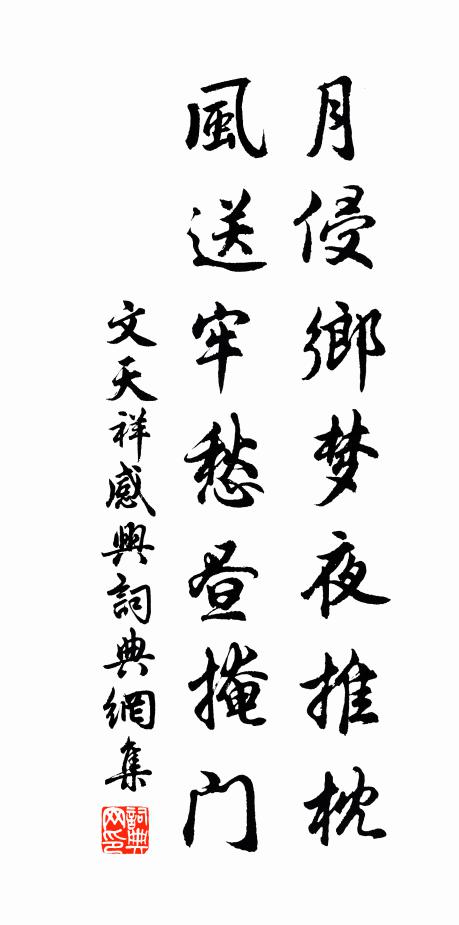 月侵鄉梦夜推枕
風送牢愁昼掩門
文天祥感興詞典網集
詞典网印